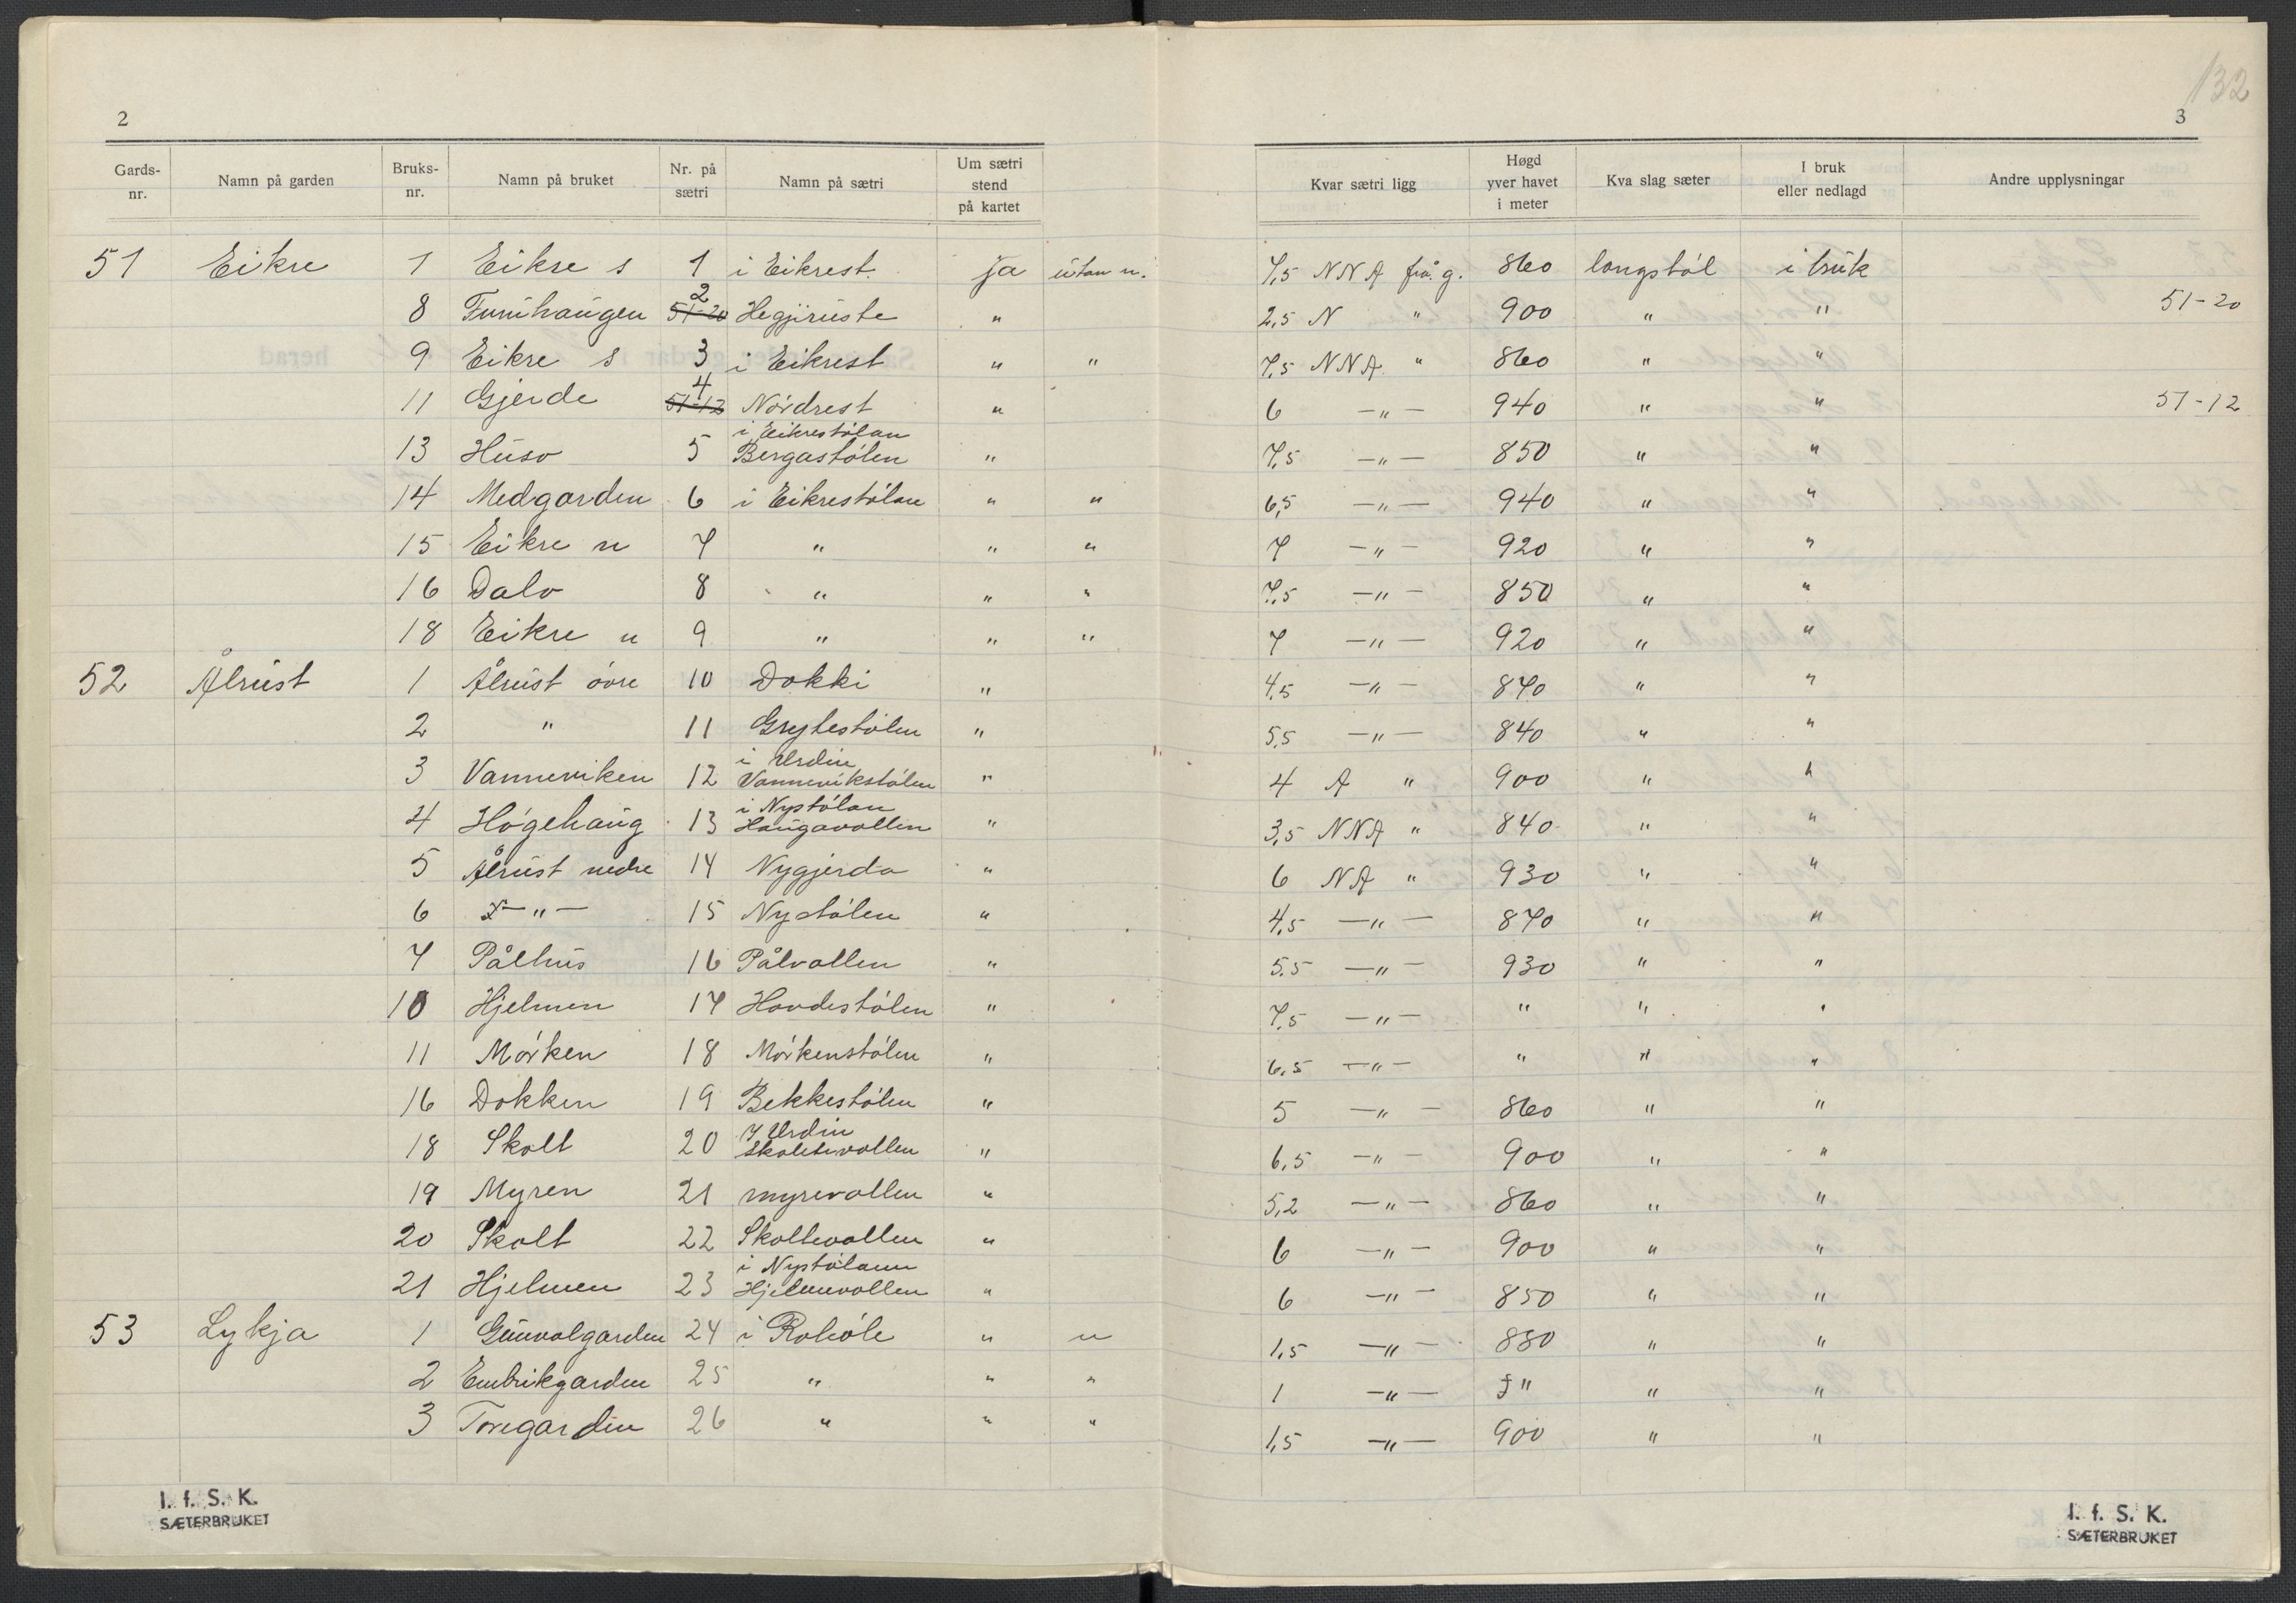 132
2
3
Gards-nr. Namn på garden Bruks-nr. Namn på bruket Nr. på sætri Namn på sætri Um sætri stend på kartet Kvar sætri ligg Høgd yver havet i meter Kva slag sæter I bruk eller nedlagd Andre upplysningar
51 Eikre 1 Eikre s 1 i Eikrest. ja utan n. 7,5 NNA frå g. 860 langstøl i bruk
8 Furuhaugen 51-20 2 Hegjiruste " 2,5 N " 900 " " 51-20
9 Eikre s 3 i Eikrest " " 7,5 NNA " 860 " "
11 Gjerde 51-12 4 Nørdrest " 6 -"- 940 " " 51-12
13 Huso 5 i Eikrestølan Bergastølen " 7,5 -"- 850 " "
14 Medgarden 6 i Eikrestølan " " 6,5 -"- 940 " "
15 Eikre n 7 " " " 7 -"- 920 " "
16 Dalo 8 " " " 7,5 -"- 850 " "
18 Eikre n 9 " " " 7 -"- 920 " "
52 Ålrust 1 Ålrust øvre 10 Dokki " 4,5 -"- 870 " "
2 " 11 Grytestølen " 5,5 -"- 840 " "
3 Vanneviken 12 i Urdin Vannevikstølen " 4 A " 900 " "
4 Høgehaug 13 i Nystølan Haugavollen " 3,5 NNA " 840 " "
5 Ålrust nedre 14 Nygjerda " 6 NA " 930 " "
6 -"- 15 Nystølen " 4,5 -"- 870 " "
7 Pålhus 16 Pålvollen " 5.5 -"- 930 " "
10 Hjelmen 17 Hovdestølen " 7,5 -"- " " "
11 Mørken 18 Mørkenstølen " 6,5 -"- " " "
16 Dokken 19 Bekkestølen " 5 -"- 860 " "
18 Skolt 20 I Urdin Skoltevollen " 6,5 -"- 900 " "
19 Myren 21 myrevollen " 5,2 -"- 860 " "
20 Skolt 22 Skoltevollen " 6 -"- 900 " "
21 Hjelmen 23 i Nystølann Hjelmevollen " 6 -"- 850 " "
53 Lykja 1 Gunvalgarden 24 i " " 1,5 -"- 880 " "
2 Embrikgarden 25 " " " 1 -"- " " "
3 Toregarden 26 " " " 1,5 -"- 900 " "
I. f. S. K.
SÆTERBRUKET
I. f. S. K.
SÆTERBRUKET